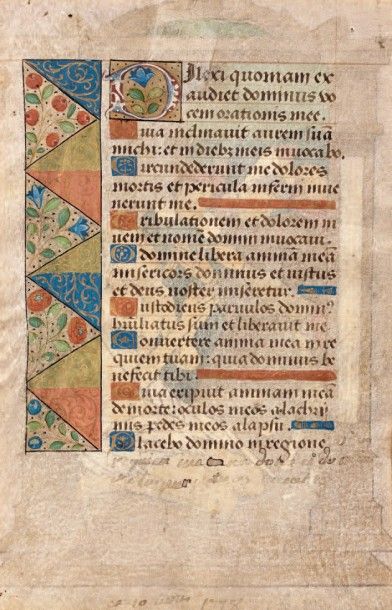 Dilexi quoniam ex
audiet dominus vo
cem orationis mee.
Quia inclinavit aurem suā
michi: et in diebz meis invocabo.
Circundederunt me dolores
mortis et pericula inferni inve
nerunt me.
Tribulationem et dolorem in
veni et nomen domini invocavi.
O domine libera animā meā
misericors dominus et iustus
et deus noster miseretur.
Custodiens parvulos domin9
humiliatus sum et liberavit me
Convertere anima mea in re
quiem tuam: quia dominus be
nefecit tibi.
Quia eripuit animam meā
de morte: oculos meos a lachri
mis pedes meos a lapsu.
Placebo domino in regione